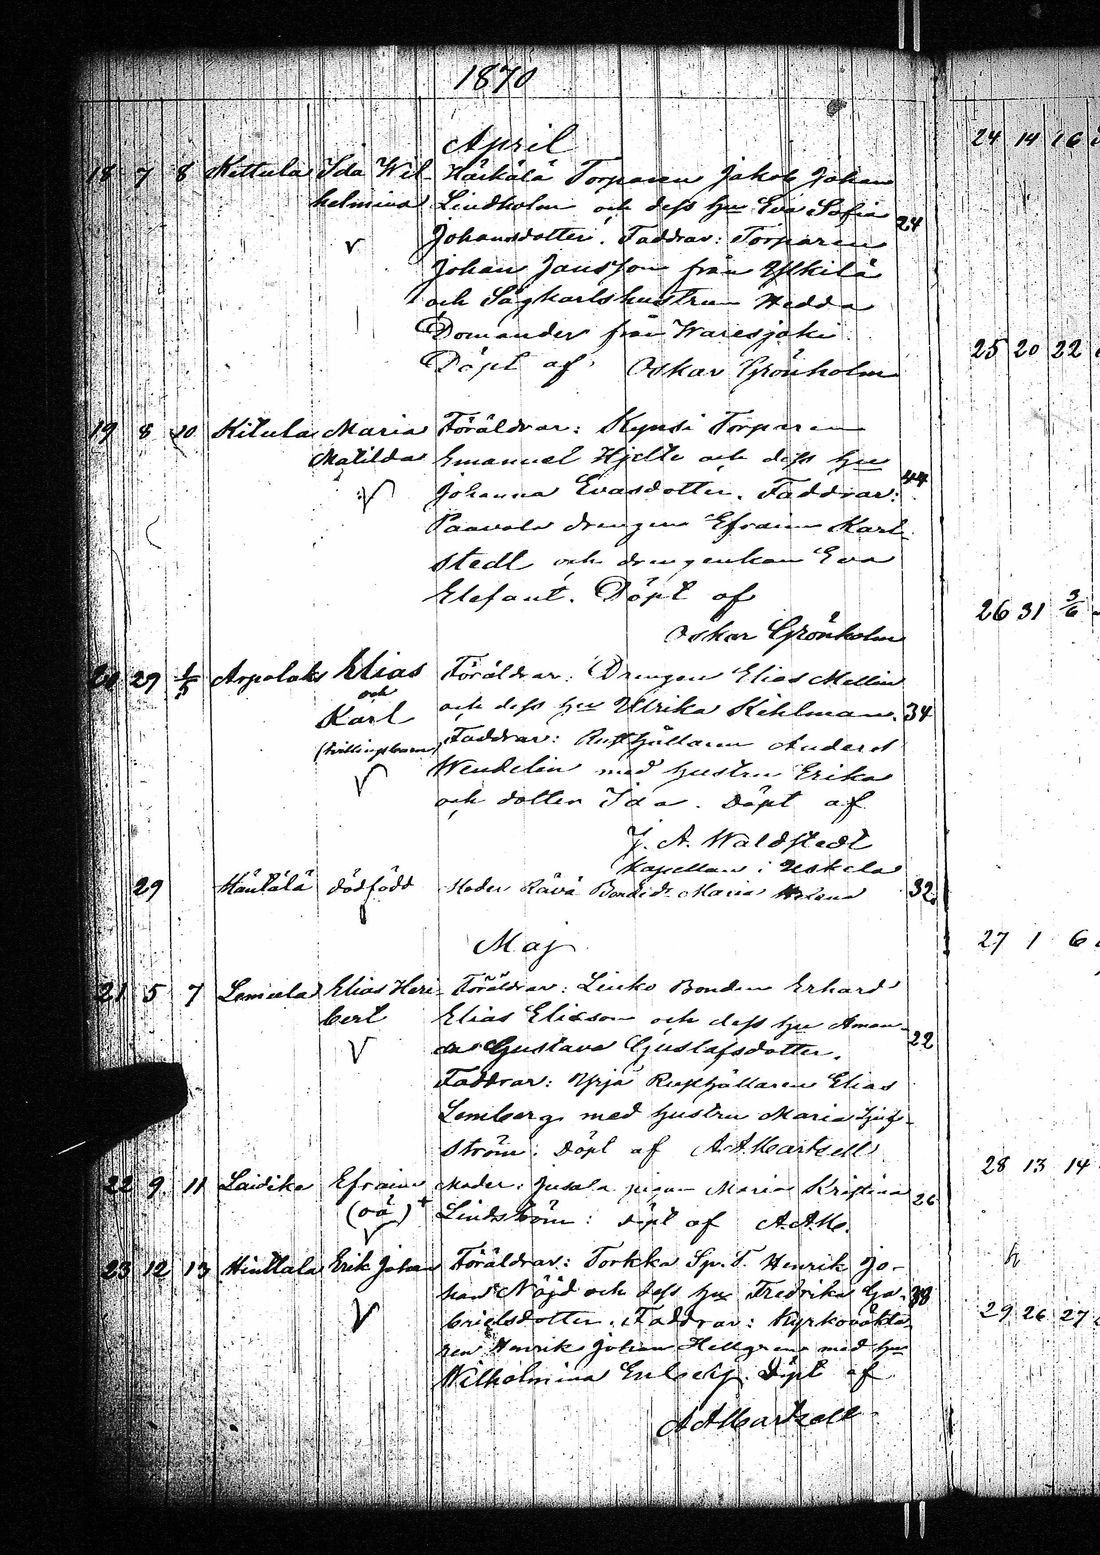 1870
April
18 7 8 Kittula Ida Wil- Härkälä Torparen Jakob Johan
helmina Lindholm och dess hu Eva Sofia 24
Johansdotter. Faddrar: Torparen
Johan Jansson från
och Sågkarlshustrun Hedda
Domander från Waresjoki.
Döpt af Oskar Grönholm
19 8 10 Kitula Maria Föräldrar: Kynsi Torparen
Matilda Emanuel Hjelte och dess hu
Johanna Evasdotter. Faddrar: 44
Paavola drengen Efraim Karl-
stedt och drengenkan Eva
Elefant. Döpt af
Oskar Grönholm
20 29 1/5 Arpalaks Elias Föräldrar: Drengen Elias Mellin
och
Karl och dess hu Ulrika Kihlman. 34
(tvillingsbarn) Faddrar: Rusthållaren Anders
Wendelin med hustru Erika
och dotter Ida. Döpt af
J. A. Waldstedt
Kapellan i Uskela
29 Häntälä dödfödd Moder Rävä Bonded. Maria 32
Maj
21 5 7 Lemula Elias Heri- Föräldrar: Linko Bonden Erhard
bert Elias Elisson och dess hu Aman-
da Gustava Gustafsdotter. 22
Faddrar: Yrjä Rusthållaren Elias
Lemberg med hustru Maria
ström. Döpt af A. A. Martsell
22 9 11 Laidike Efraim Moder: Jusala pigan Maria Kristina 26
(oä) + Lindström: Döpt af A. A. M.
23 12 13 Hinttala Erik Johan Föräldrar: Torkka Sp. T. Henrik Jo-
han Nöjd och dess hu Fredrika Ga- 38
brielsdotter. Faddrar: Kyrkoväkta-
ren Henrik Johan Hellgren med hu
Wilhelmina. Döpt af
A A Martsell
24 14 16
25 20 22
26 31 3/6
27 1 6
28 13 14
29 26 27